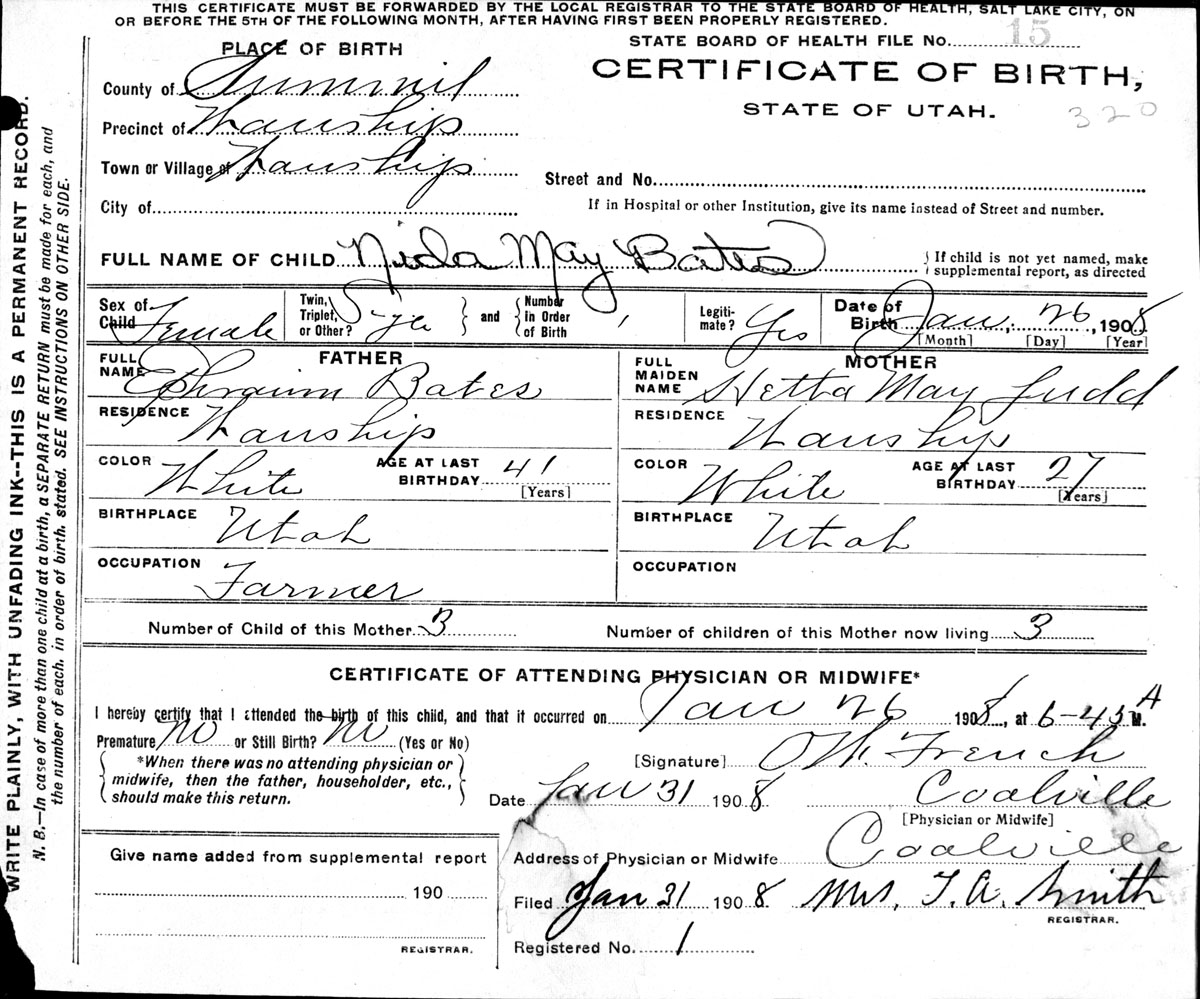 THIS CERTIFICATE MUST BE FORWARDED BY THE LOCAL REGISTRAR TO THE STATE BOARD OF HEALTH, SALT LAKE CITY, ON
OR BEFORE THE 5TH OF THE FOLLOWING MONTH, AFTER HAVING FIRST BEEN PROPERLY REGISTERED.
WRITE PLAINLY, WITH UNFADING INK--THIS IS A PERMANENT RECORD.
N. B.—In case of more than one child at a birth, a SEPARATE RETURN must be made for each, and
the number of each, in order of birth, stated. SEE INSTRUCTIONS ON OTHER SIDE.
PLACE OF BIRTH
STATE BOARD OF HEALTH FILE No. 15
CERTIFICATE OF BIRTH,
STATE OF UTAH.
320
County of Summit
Precinct of Wanship
Town or Village of Wanship
Street and No.
City of
If in Hospital or other Institution, give its name instead of Street and number.
FULL NAME OF CHILD Nida May Bates
If child is not yet named, make
supplemental report, as directed
Sex of Child Female
Twin, Triplet, or Other?
and Number in Order of Birth 1
Legitimate? Yes
Date of Birth Jan. 26, 1908
[Month] [Day] [Year]
FATHER
FULL NAME Ephraim Bates
RESIDENCE Wanship
COLOR White AGE AT LAST BIRTHDAY 41
[Years]
BIRTHPLACE Utah
OCCUPATION Farmer
MOTHER
FULL MAIDEN NAME Hetta May Judd
RESIDENCE Wanship
COLOR White AGE AT LAST BIRTHDAY 27
[Years]
BIRTHPLACE Utah
OCCUPATION
Number of Child of this Mother 3 Number of children of this Mother now living 3
CERTIFICATE OF ATTENDING PHYSICIAN OR MIDWIFE*
I hereby certify that I attended the birth of this child, and that it occurred on Jan 26 1908, at 6-45 A M.
Premature No or Still Birth? No (Yes or No)
*When there was no attending physician or
midwife, then the father, householder, etc.,
should make this return.
[Signature] French
Date Jan 31 1908 Coalville
[Physician or Midwife]
Address of Physician or Midwife Coalville
Filed Jan 31 1908 Mrs. T. A. Smith
REGISTRAR.
Registered No. 1
Give name added from supplemental report
190
REGISTRAR.